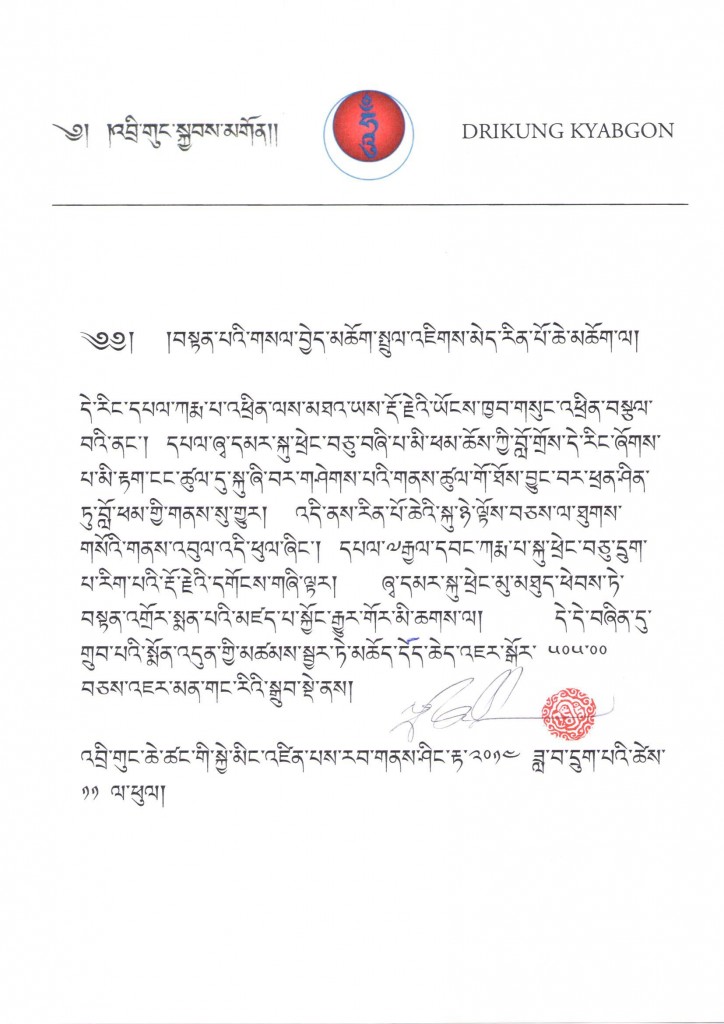 ༄༅། །འབྲི་གུང་སྐྱབས་མགོན།།
DRIKUNG KYABGON
༄༅༅། །བསྟན་པའི་གསལ་བྱེད་མཆོག་སྤྲུལ་འཇིགས་མེད་རིན་པོ་ཆེ་མཆོག་ལ།
དེ་རིང་དཔལ་ཀརྨ་པ་འཕྲིན་ལས་མཐའ་ཡས་རྡོ་རྗེའི་ཡོངས་ཁྱབ་གསུང་འཕྲིན་བསྩལ་
བའི་ནང་། དཔལ་ཞྭ་དམར་སྐུ་ཕྲེང་བཅུ་བཞི་པ་མི་ཕམ་ཆོས་ཀྱི་བློ་གྲོས་དེ་རིང་ཞོགས་
པ་མི་རྟག་ངང་ཚུལ་དུ་སྐུ་ཞི་བར་གཤེགས་པའི་གནས་ཚུལ་གོ་ཐོས་བྱུང་བར་ཕྲན་ཤིན་
ཏུ་བློ་ཕམ་གྱི་གནས་སུ་གྱུར། འདི་ནས་རིན་པོ་ཆེའི་སྐུ་ཉེ་ལྟོས་བཅས་ལ་ཐུགས་
གསོའི་གནས་འབུལ་འདི་ཕུལ་ཞིང་། དཔལ་༧རྒྱལ་དབང་ཀརྨ་པ་སྐུ་ཕྲེང་བཅུ་དྲུག་
པ་རིག་པའི་རྡོ་རྗེའི་དགོངས་གཞི་ལྟར། ཞྭ་དམར་སྐུ་ཕྲེང་མུ་མཐུད་ཕེབས་ཏེ་
བསྟན་འགྲོར་སྨན་པའི་མཛད་པ་སྐྱོང་རྒྱུར་གོར་མི་ཆགས་ལ། དེ་དེ་བཞིན་དུ་
གྲུབ་པའི་སྨོན་འདུན་གྱི་མཚམས་སྦྱར་ཏེ་མཆོད་དོད་ཆེད་འཇར་སྒོར་ ༥༠༥་༠༠
བཅས་འཇར་མན་གང་རིའི་སྒྲུབ་སྡེ་ནས།
འབྲི་གུང་ཆེ་ཚང་གི་སྐྱེ་མིང་འཛིན་པས་རབ་གནས་ཤིང་རྟ་༢༠༡༤ ཟླ་བ་དྲུག་པའི་ཚེས་
༡༡ ལ་ཕུལ།